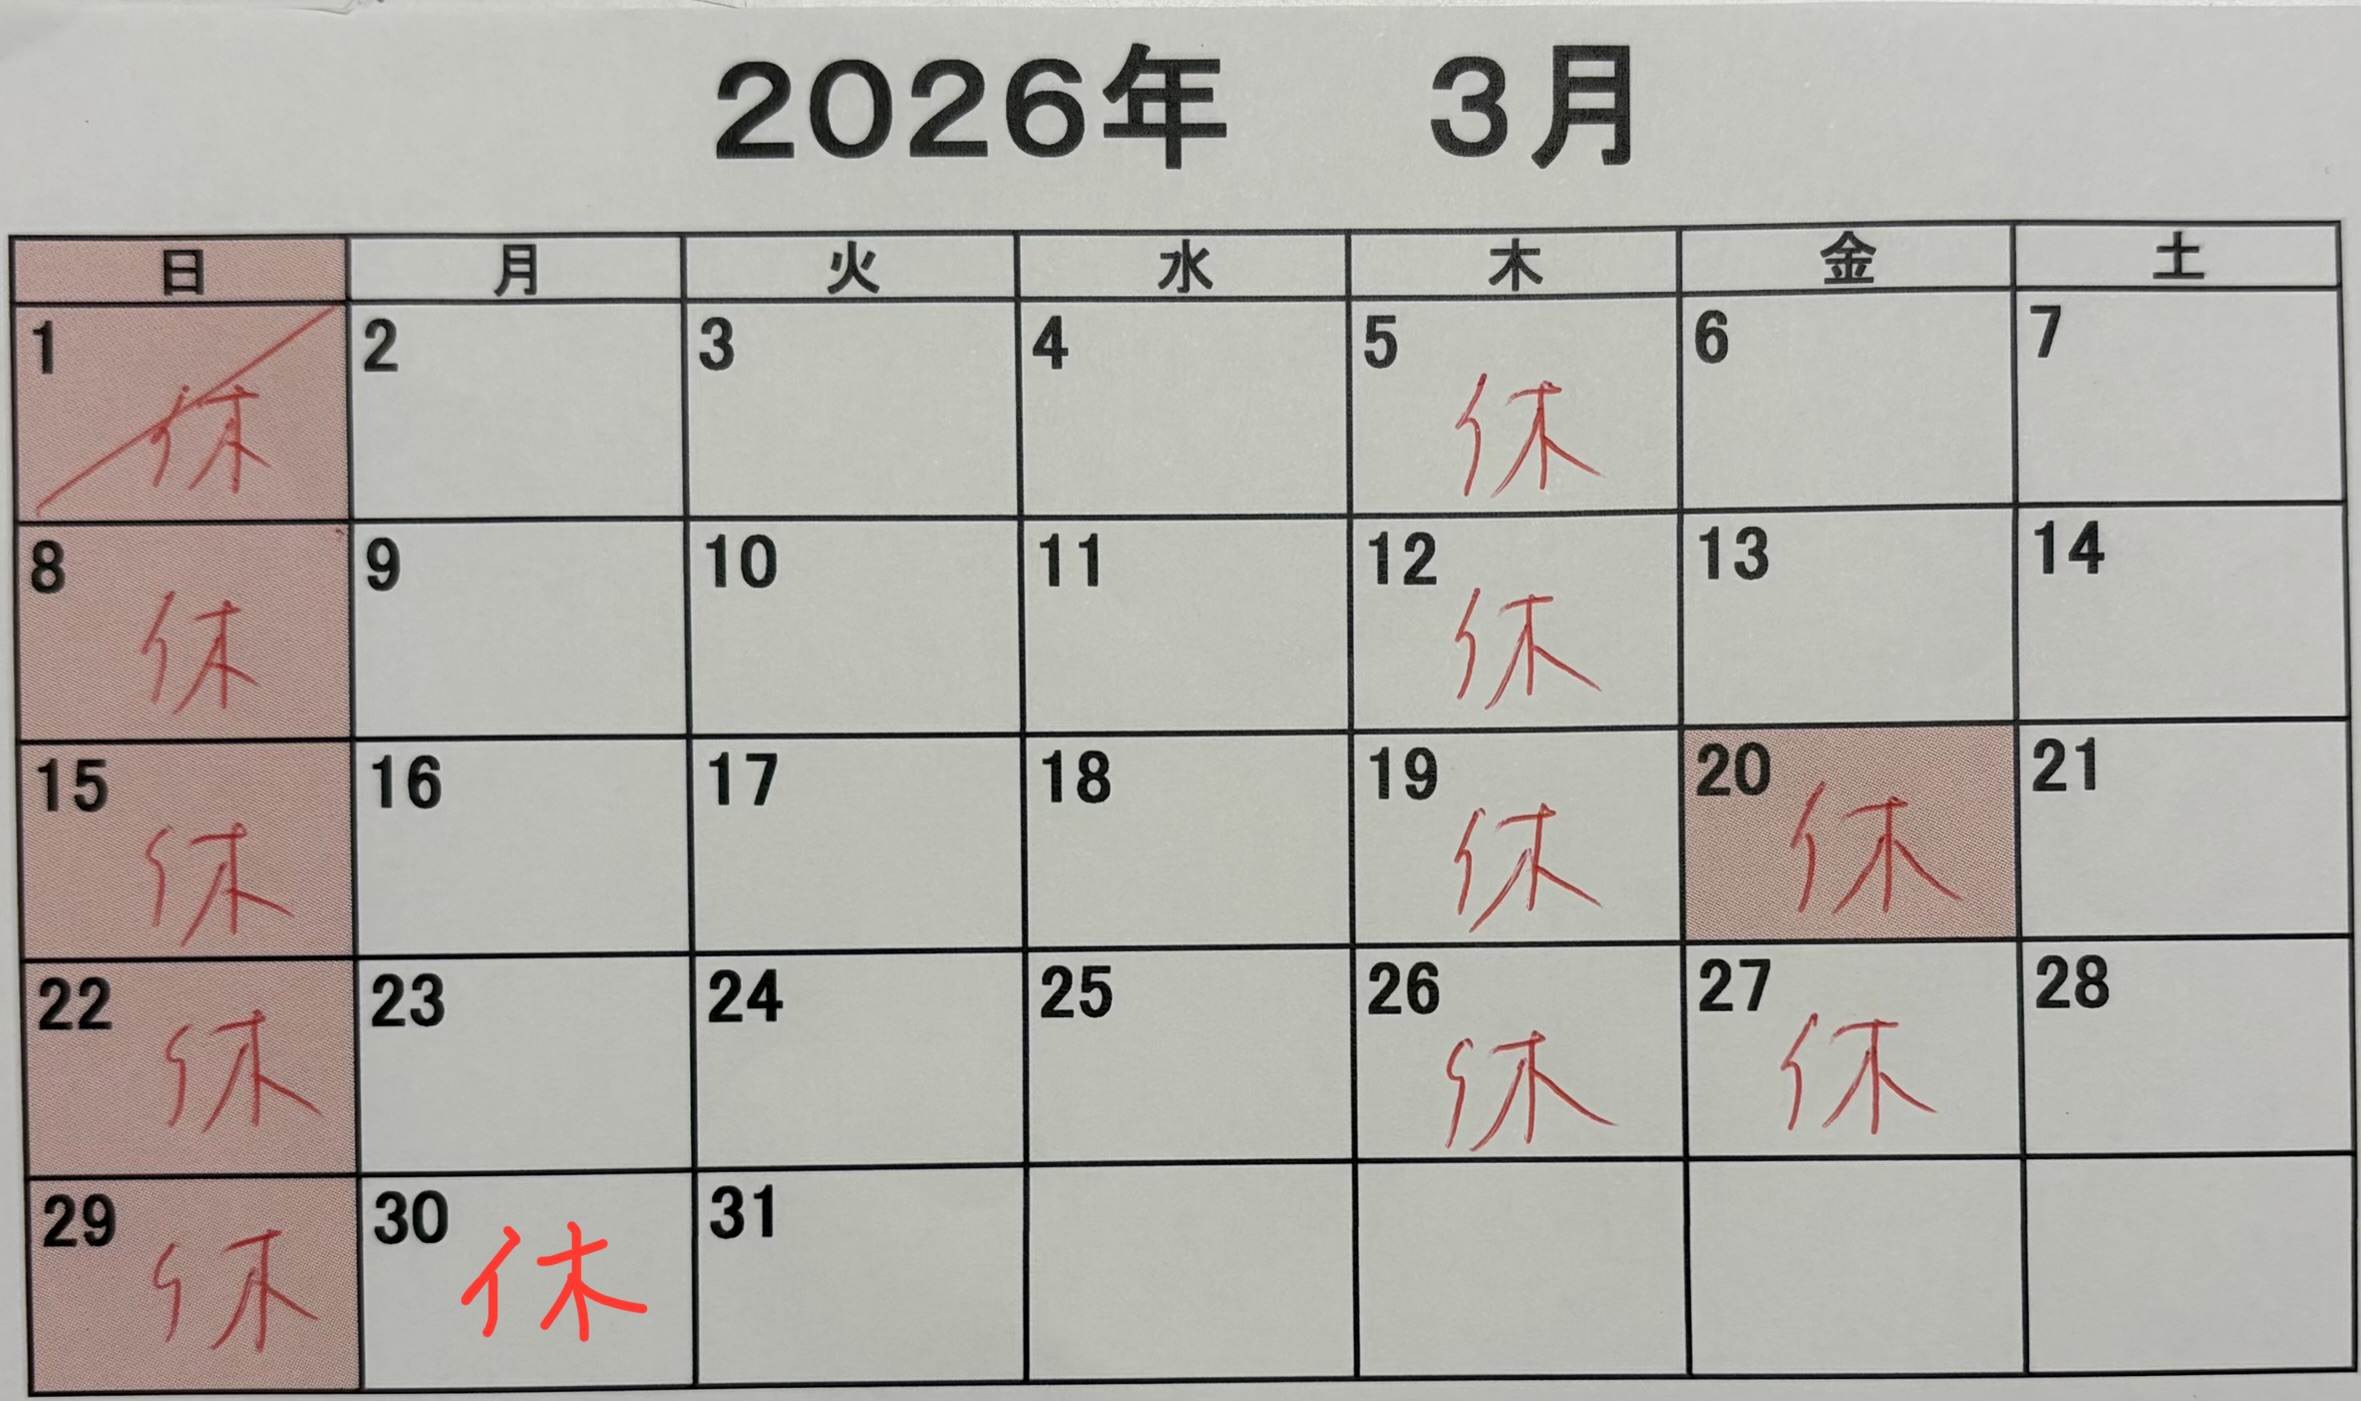 2026年 3月
日 月 火 水 木 金 土
1 2 3 4 5 6 7
休 休
8 9 10 11 12 13 14
休 休
15 16 17 18 19 20 21
休 休 休
22 23 24 25 26 27 28
休 休 休
29 30 31
休 休